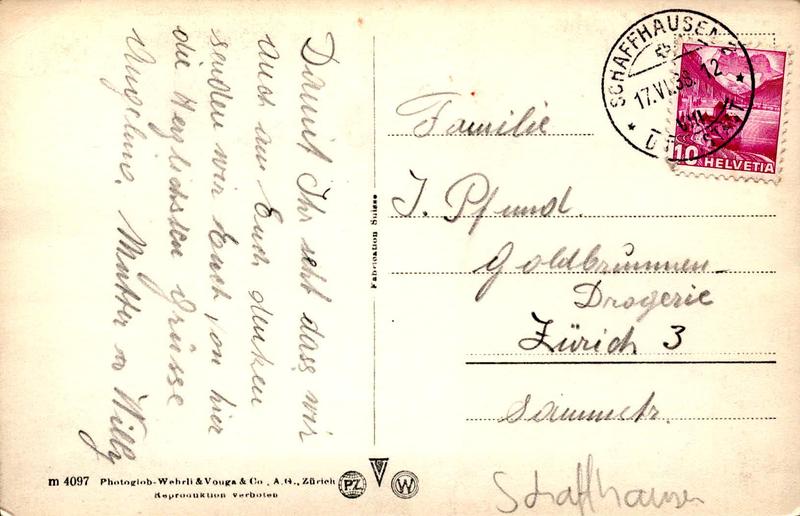 Damit Ihr seht dass wir
auch an Euch denken
senden wir Euch von hier
die Herzlichsten Grüsse
Angeline, Mutter u Willy
Fabrication Suisse
SCHAFFHAUSEN
17.VI.36. 12
10 HELVETIA
Familie
J. Pfund.
Goldbrunnen-
Drogerie
Zürich 3
Schaffhausen
m 4097 Photoglob-Wehrli & Vouga & Co., A.G., Zürich
Reproduktion verboten
PZ
W